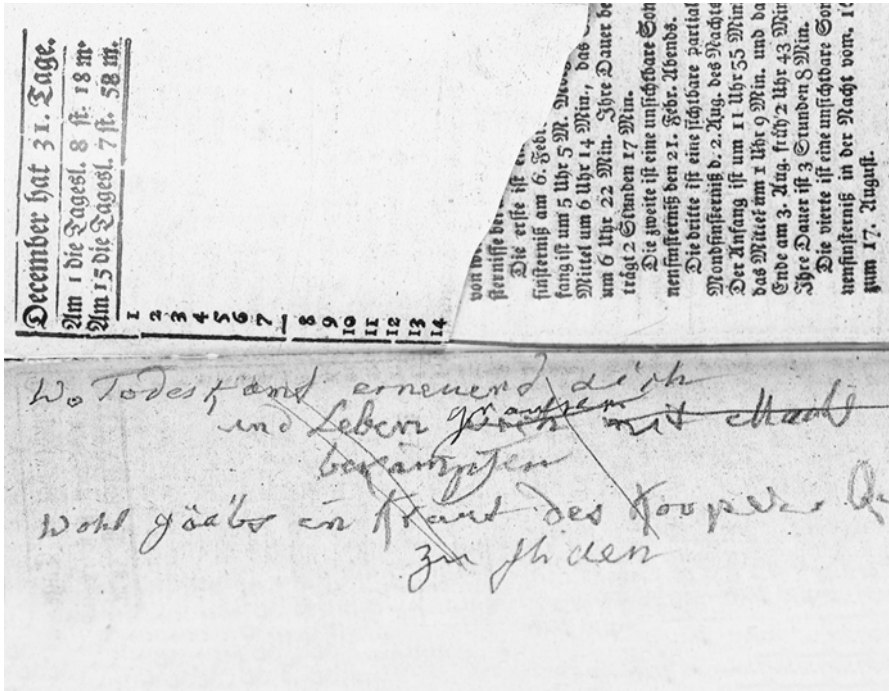 December hat 31. Tage.
Am 1 die Tagesl. 8 st. 18 m.
Am 15 die Tagesl. 7 st. 58 m.
1
2
3
4
5
6
7
8
9
10
11
12
13
14
sternisse
Die erste ist
finsterniß am 6. Febr.
fang ist um 5 Uhr 5 M.
Mittel um 6 Uhr 14 Min., das
um 6 Uhr 22 Min. Ihre Dauer be
trägt 2 Stunden 17 Min.
Die zweite ist eine unsichtbare Son
nenfinsterniß den 21. Febr. Abends.
Die dritte ist eine sichtbare partial
Mondfinsterniß d. 2. Aug. des Nachts
Der Anfang ist um 11 Uhr 35 Min.
das Mittel um 1 Uhr 9 Min. und da
Ende am 3. Aug. früh 2 Uhr 43 Min
Ihre Dauer ist 3 Stunden 8 Min.
Die vierte ist eine unsichtbare Son
nenfinsterniß in der Nacht vom. 16
zum 17. August.
Wo Todes Kamf erneuend dich
und Leben grausam mit Macht
bekämpfen
Wohl gäabs ein Kraut des
zu